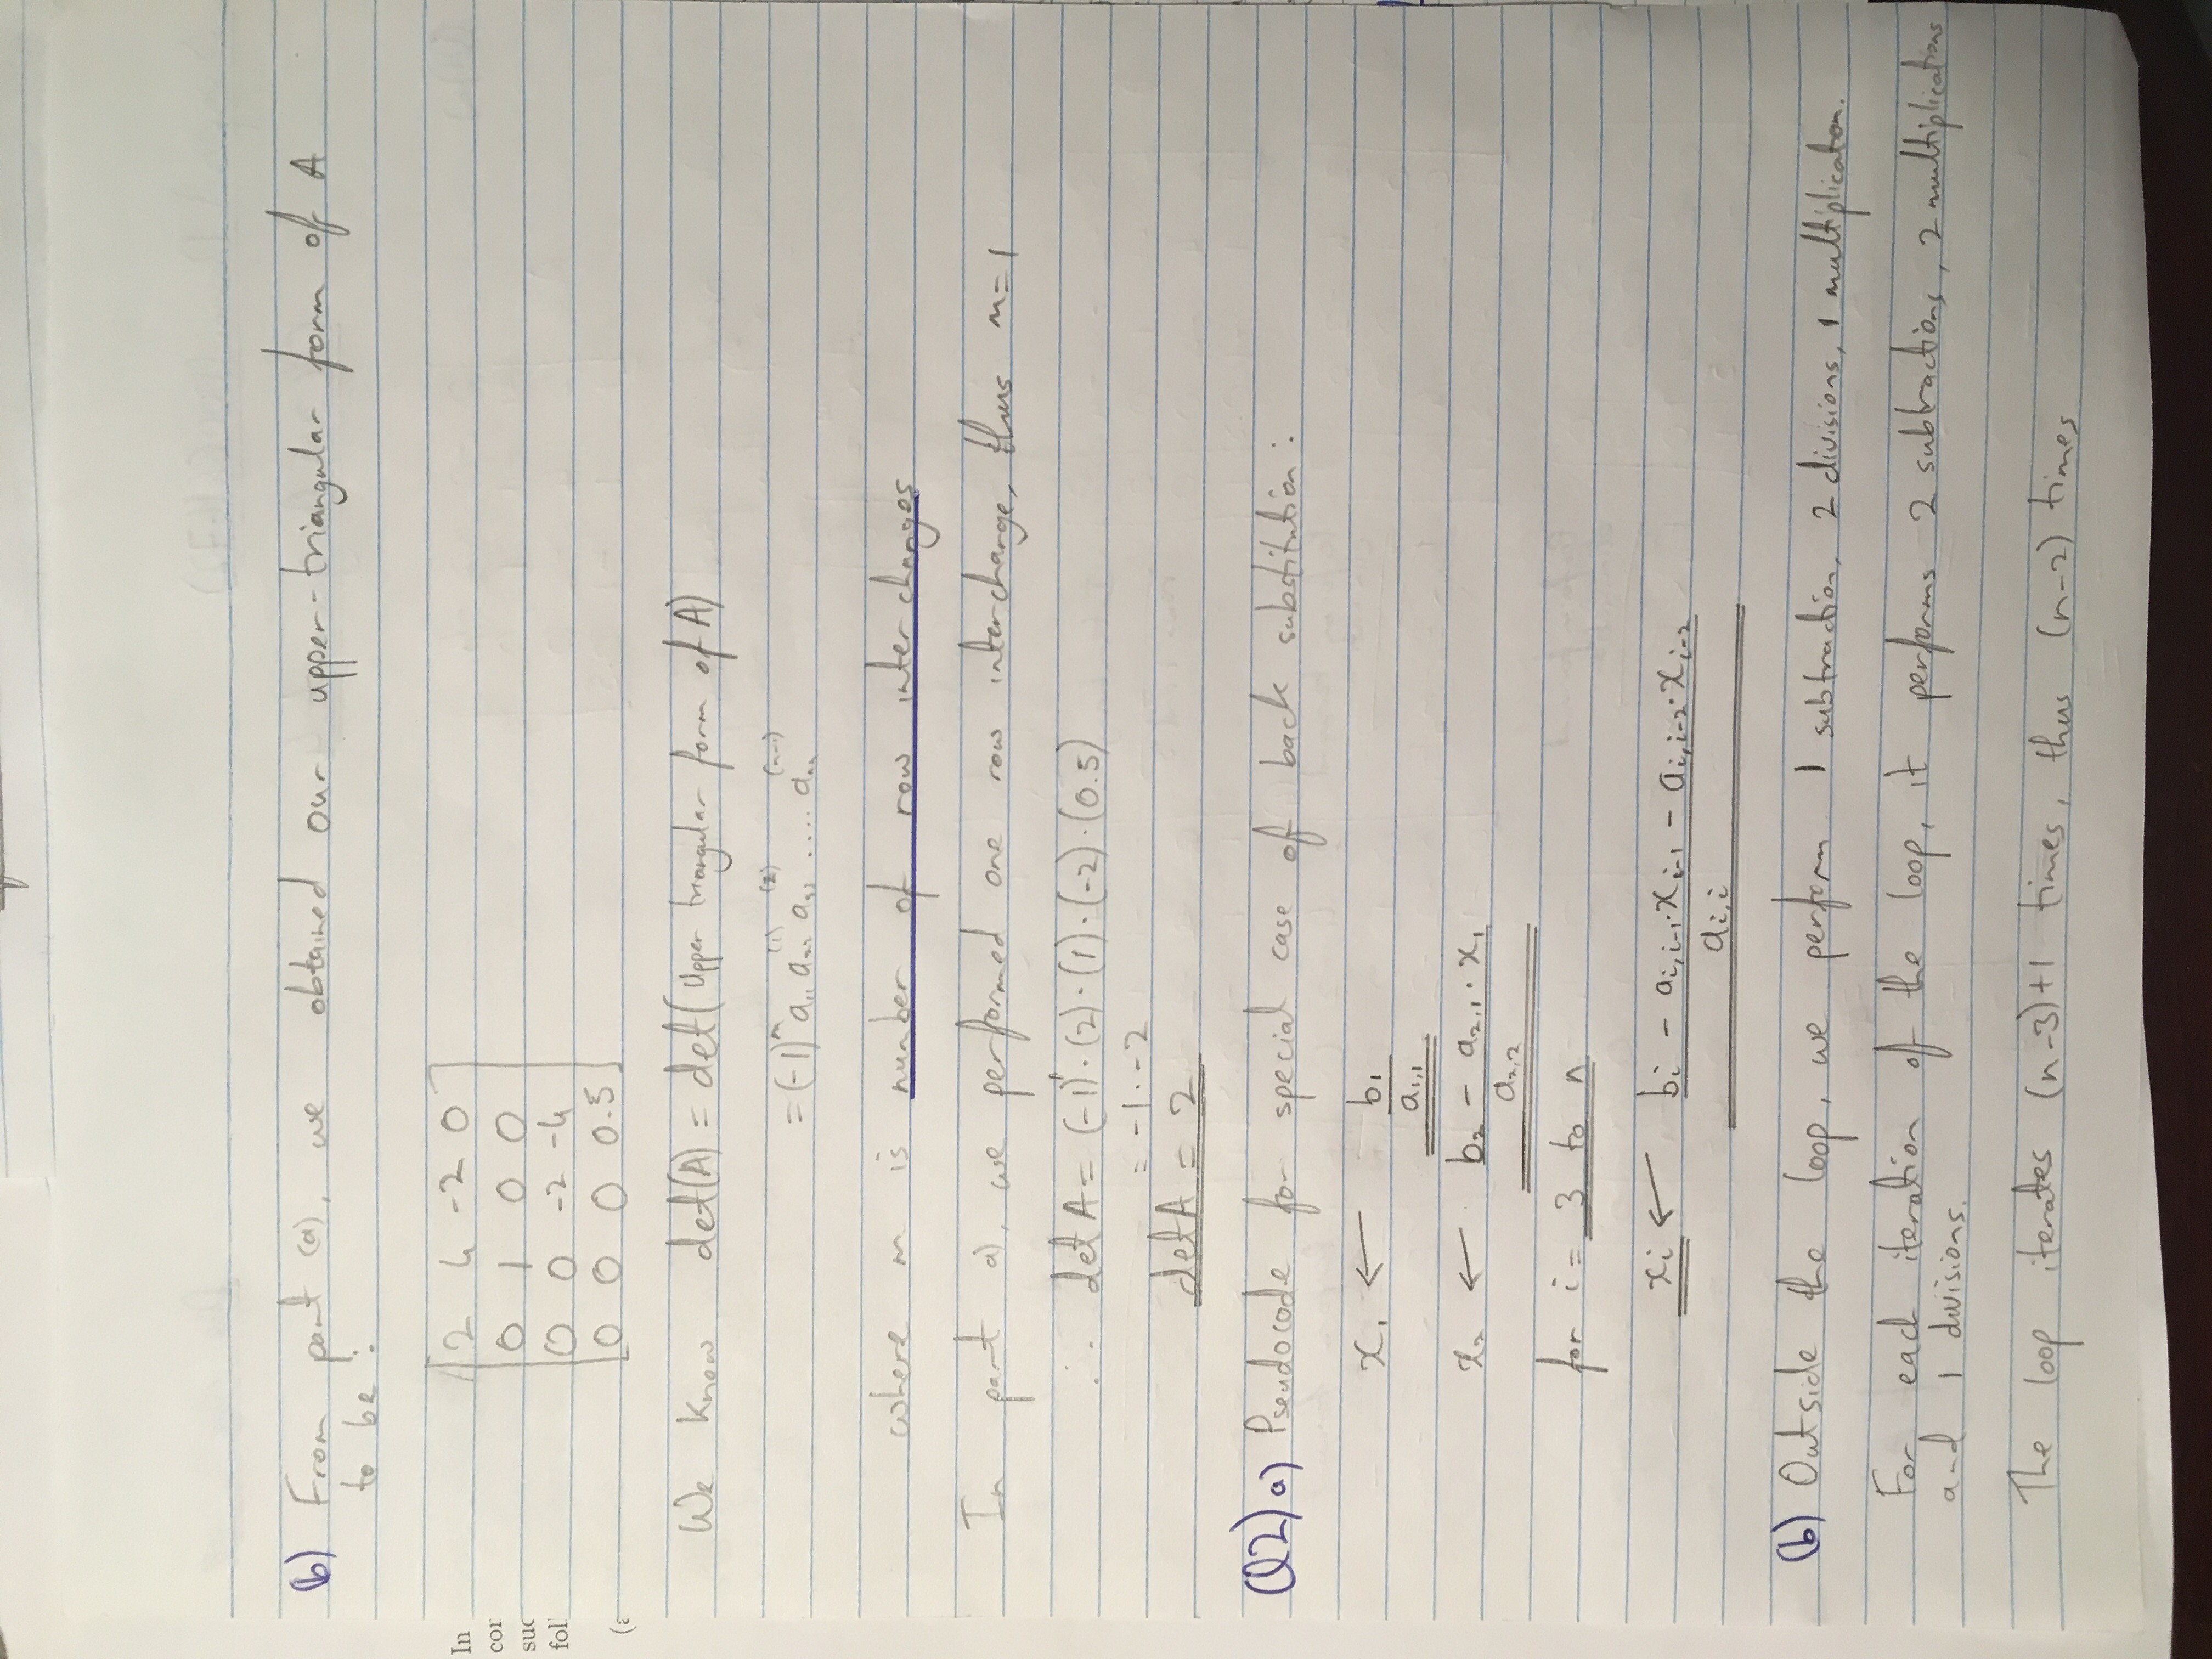 (b) From part (a), we obtained our upper-triangular form of A
to be :
2 4 -2 0
0 1 0 0
0 0 -2 -4
0 0 0 0.5
In
cor
suc
fol
(a
We know det(A) = det( Upper triangular form of A)
= (-1)^m a₁₁ a₂₂^(1) a₃₃^(2) .... aₙₙ^(n-1)
where m is number of row interchanges
In part a), we performed one row interchange, thus m=1
∴ det A = (-1)¹·(2)·(1)·(-2)·(0.5)
= -1·-2
det A = 2
Q2) a) Pseudocode for special case of back substitution :
x₁ ← b₁ / a₁,₁
x₂ ← b₂ - a₂,₁·x₁ / a₂,₂
for i = 3 to n
xᵢ ← bᵢ - aᵢ,ᵢ₋₁·xᵢ₋₁ - aᵢ,ᵢ₋₂·xᵢ₋₂ / aᵢ,ᵢ
(b) Outside the loop, we perform 1 subtraction, 2 divisions, 1 multiplication.
For each iteration of the loop, it performs 2 subtractions, 2 multiplications
and 1 divisions.
The loop iterates (n-3)+1 times, thus (n-2) times